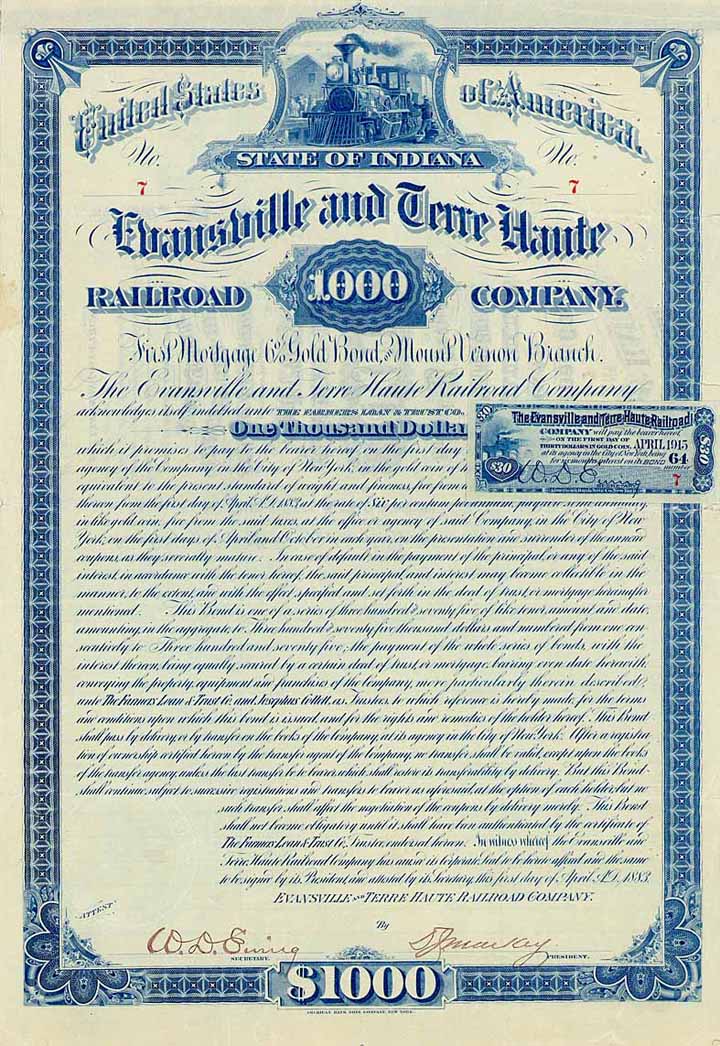 United States of America.
STATE OF INDIANA
No. 7 No. 7
Evansville and Terre Haute
RAILROAD 1.000 COMPANY.
First Mortgage 6% Gold Bond, on Mount Vernon Branch.
The Evansville and Terre Haute Railroad Company
acknowledges itself indebted unto THE FARMERS LOAN & TRUST CO.,
One Thousand Dolla
which it promises to pay to the bearer hereof on the first day
agency of the Company in the City of New York, in the coin of
equivalent to the present standard of weight and fineness, free from
thereon from the first day of April, A.D. 1883, at the rate of Six per centum per annum, payable semi annually,
in like gold coin, free from the said taxes, at the office or agency of said Company, in the City of New
York, on the first days of April and October in each year, on the presentation and surrender of the annexed
coupons, as they severally mature. In case of default in the payment of the principal, or any of the said
interest, in accordance with the tenor hereof, the said principal, and interest may become collectible in the
manner, to the extent, and with the effect, specified and set forth in the deed of trust, or mortgage hereinafter
mentioned. This Bond is one of a series of three hundred & seventy five of like tenor, amount and date,
amounting, in the aggregate, to Three hundred & seventy five thousand dollars and numbered from one con-
secutively to Three hundred and seventy five; the payment of the whole series of bonds, with the
interest thereon, being equally secured by a certain deed of trust, or mortgage, bearing even date herewith,
conveying the property, equipment and franchises of the Company, more particularly therein described,
unto The Farmers Loan & Trust Co. and Josephus Collett, as Trustees, to which reference is hereby made, for the terms
and conditions upon which this bond is issued, and for the rights and remedies of the holder hereof. This Bond
shall pass by delivery, or by transfer on the books of the Company, at its agency in the City of New York. After a registra-
tion of ownership certified hereon by the transfer agent of the Company, no transfer shall be valid, except upon the books
of the transfer agency, unless the last transfer be to bearer, which shall restore its transferability by delivery. But this Bond
shall continue subject to successive registrations and transfers to bearer as aforesaid, at the option of each holder, but no
such transfer shall affect the negotiation of the coupons by delivery merely. This Bond
shall not become obligatory until it shall have been authenticated by the certificate of
The Farmers Loan & Trust Co., Trustee, endorsed hereon. In witness whereof the Evansville and
Terre Haute Railroad Company has caused its Corporate Seal to be hereto affixed and the same
to be signed by its President, and attested by its Secretary, this first day of April, A.D. 1883.
EVANSVILLE AND TERRE HAUTE RAILROAD COMPANY.
ATTEST
By
W. D. Ewing
SECRETARY.
PRESIDENT.
$1000
AMERICAN BANK NOTE COMPANY, NEW YORK.
$30
The Evansville and Terre Haute Railroad
COMPANY will pay the bearer hereof,
ON THE FIRST DAY OF APRIL 1915
THIRTY DOLLARS IN GOLD COIN,
at its agency in the City of New York, being 64
for six months interest on its BOND number 7
$30
W. D. Ewing
$30